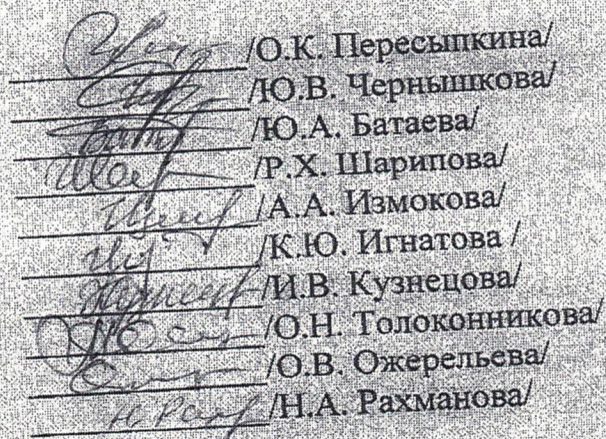 /О.К. Пересыпкина/
/Ю.В. Чернышкова/
/Ю.А. Батаева/
/Р.Х. Шарипова/
/А.А. Измокова/
/К.Ю. Игнатова /
/И.В. Кузнецова/
/О.Н. Толоконникова/
/О.В. Ожерельева/
/Н.А. Рахманова/